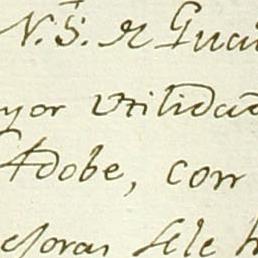 N. S. R Guai
yor Utilidad
Adobe, con
esoras sele h